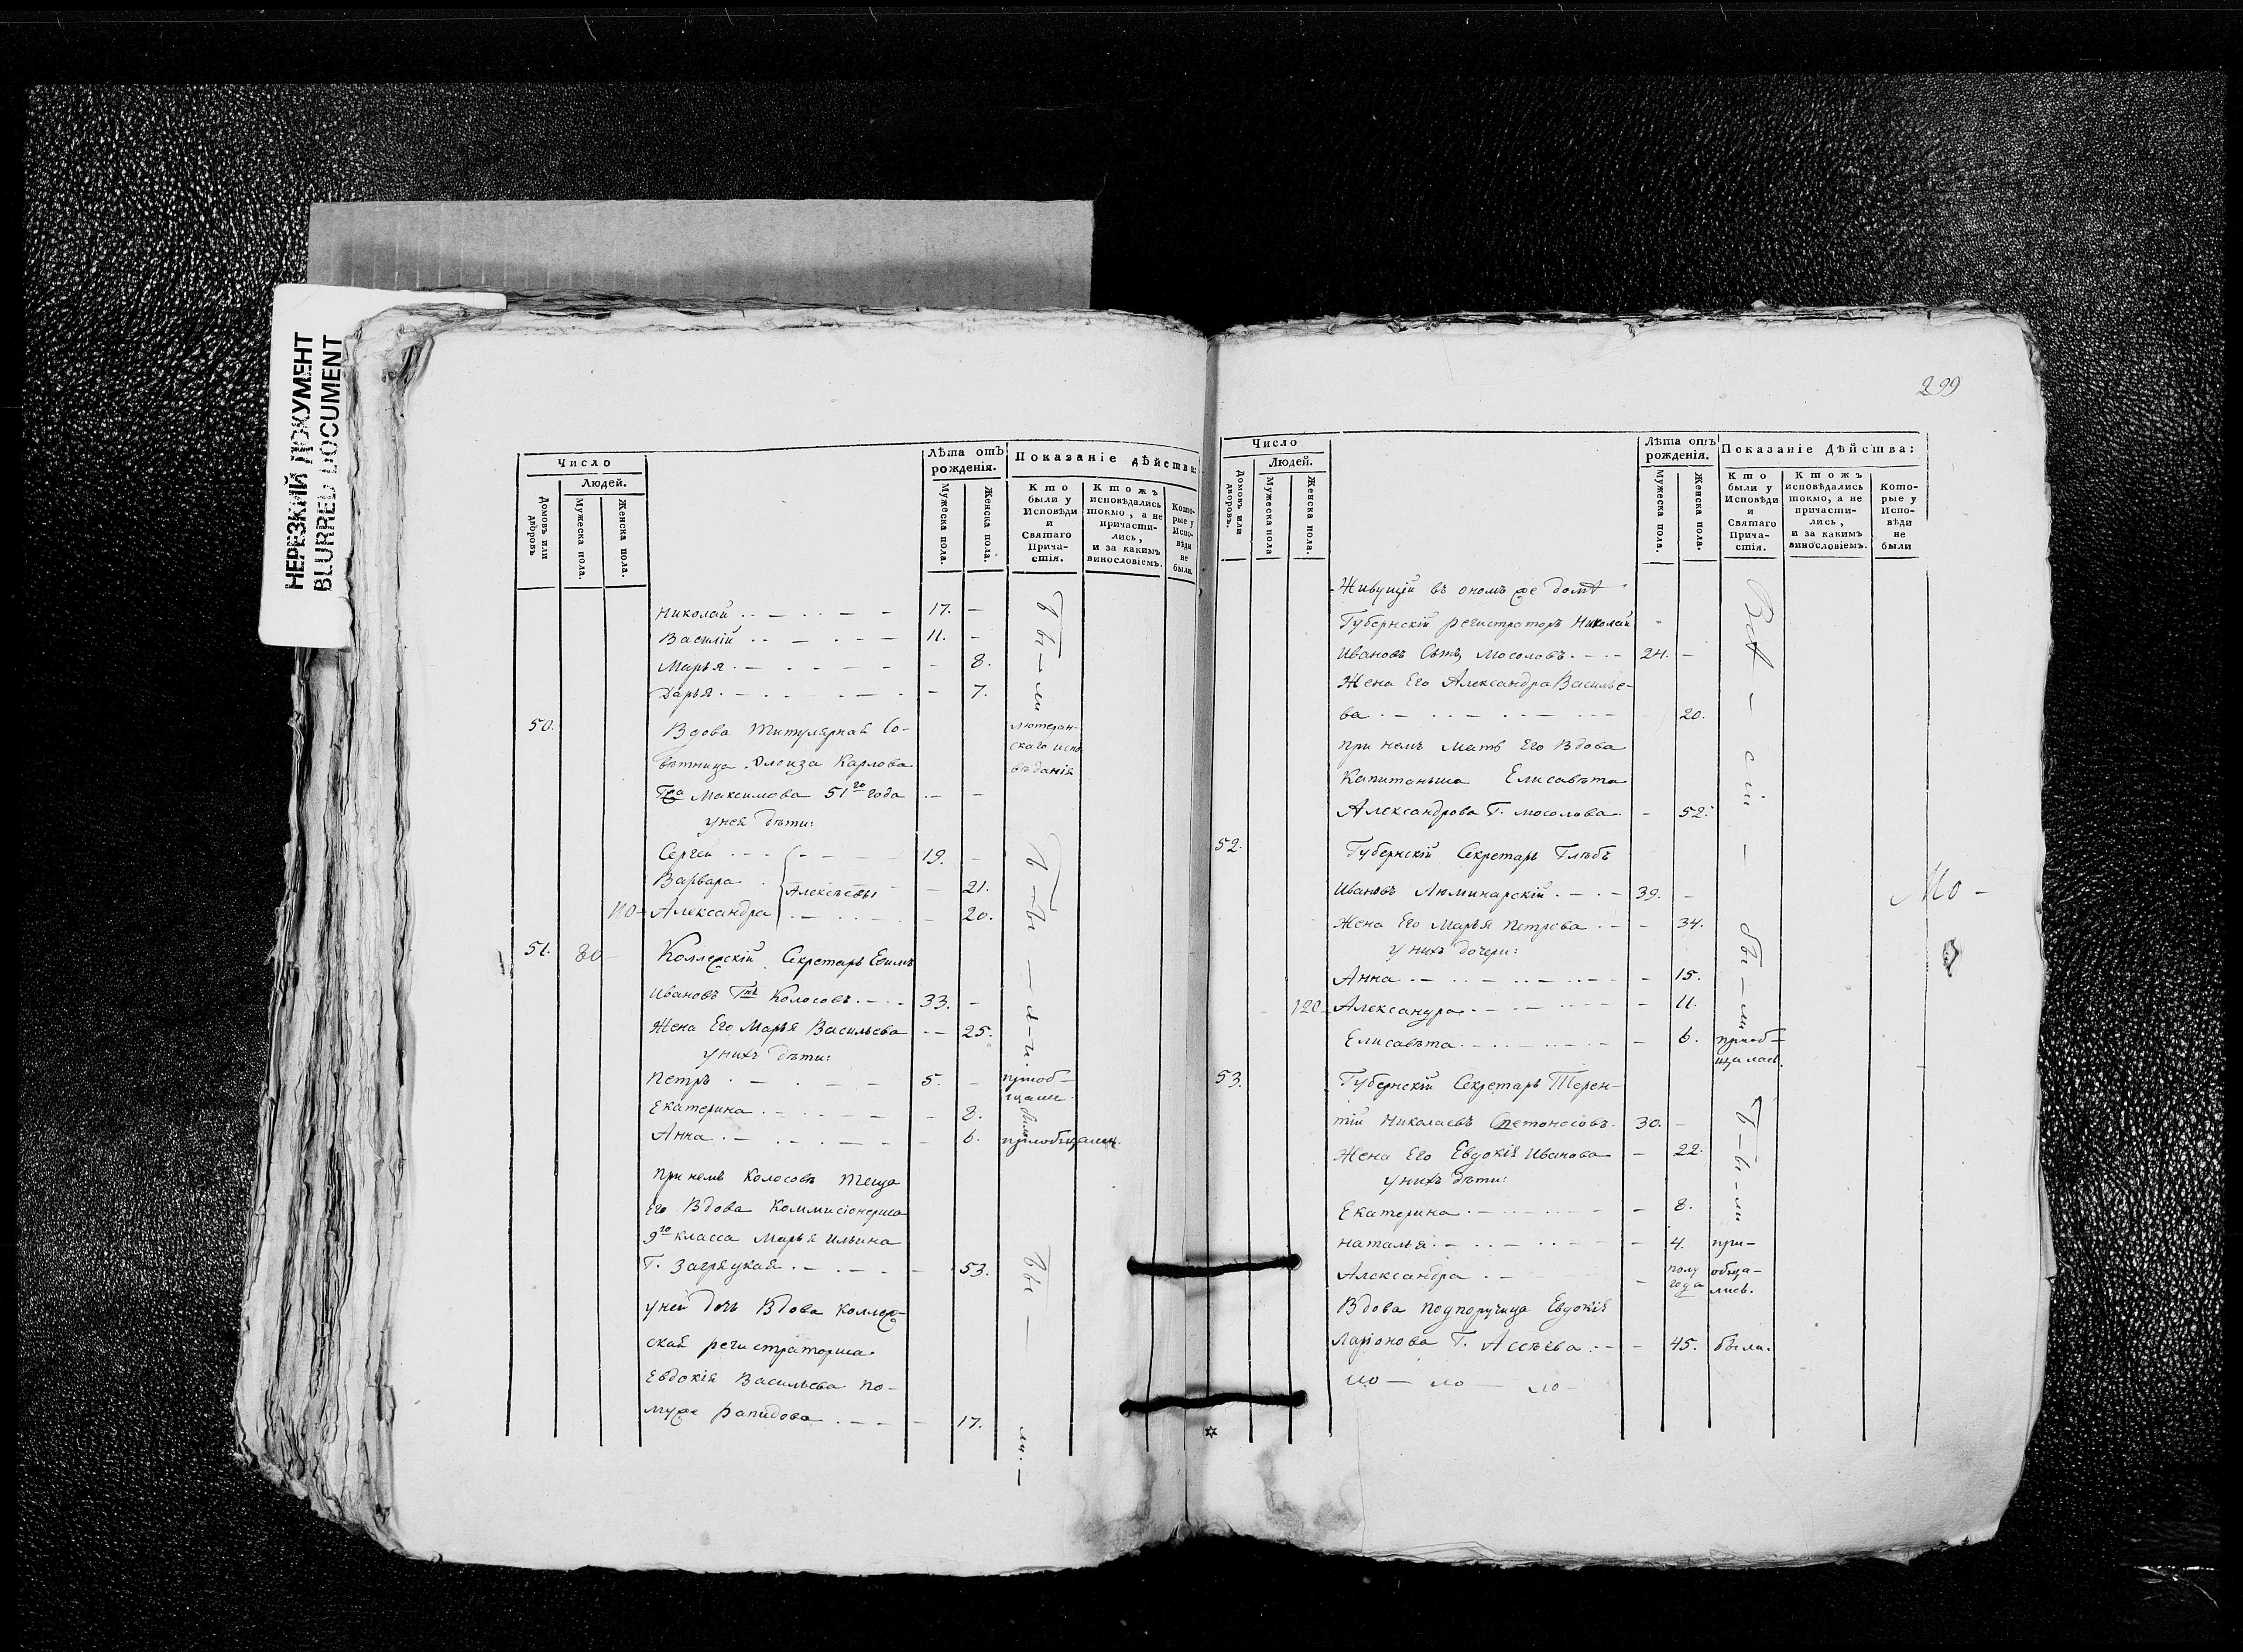 НЕРЕЗКИЙ ДОКУМЕНТ
BLURRED DOCUMENT
Число
Людей.
Домовъ или дворовъ
Мужеска пола.
Женска пола.
Лѣта отъ рожденія.
Мужеска пола.
Женска пола.
Показаніе дѣйства:
Кто были у Исповѣди и Святаго Прича-стія.
Ктожъ исповѣдались токмо, а не причасти-лись, и за какимъ винословіемъ.
Кото-рые у Испо-вѣди не были.
Николай 17. —
Василій 11. —
Марья — 8.
Дарья — 7.
бы — ли
50. Вдова Титулярная Со- лютеран-
вѣтница Карлова скаго испо
Максимова 51го года — — вѣданія
у нея дѣти:
Сергей 19. —
Варвара Алексѣевы — 21.
110 Александра — 20.
б — ы — л — и
51. 80 Секретарь
Ивановъ Колосовъ 33. —
Жена Его Марья Васильева — 25.
у нихъ дѣти:
Петръ 5. — приоб-
щали
Екатерина — 8. была
Анна — 6.
При немъ Колосовѣ теща
Его Вдова Коммисіонерша
9го класса Марья Ильина
Г. Загряцкая — 53.
у ней дочь Вдова Коллеж-
ская регистраторша
Евдокія Васильева по-
мужѣ Рапидова — 17.
бы — ли. —
299
Число
Людей.
Домовъ или дворовъ.
Мужеска пола
Женска пола.
Лѣта отъ рожденія.
Мужеска пола.
Женска пола.
Показаніе Дѣйства:
Кто были у Исповѣди и Святаго Прича-стія.
Ктожъ исповѣдались токмо, а не причасти-лись, и за какимъ винословіемъ.
Кото-рые у Испо-вѣди не были
Живущій въ ономъ же домѣ
Губернскій регистраторъ Николай
Ивановъ Сынъ Мосоловъ 24. —
Жена Его Александра Василье-
ва — 20.
При немъ Мать Его Вдова
Капитанша Елисавѣта
Александрова Г. Мосолова — 52.
52. Губернскій Секретарь Глѣбъ
Ивановъ Люминарскій 39. —
Жена Его Марья Петрова — 34.
у нихъ дочери:
Анна — 15.
120 Александра — 11.
Всѣ — сіи — бы — ли
Елисавѣта — 6. приоб-
щалась.
53. Губернскій Секретарь Терен-
тій Николаевъ 30. —
Жена Его Евдокія Иванова — 22.
у нихъ дѣти:
Екатерина — 8.
б — ы — ли
Наталья — 4. при-
Александра — полу года обща-
лись.
Вдова подпоручица Евдокія
Ларіонова Г. — 45. была.